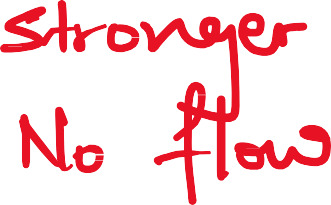 Stronger
No flow